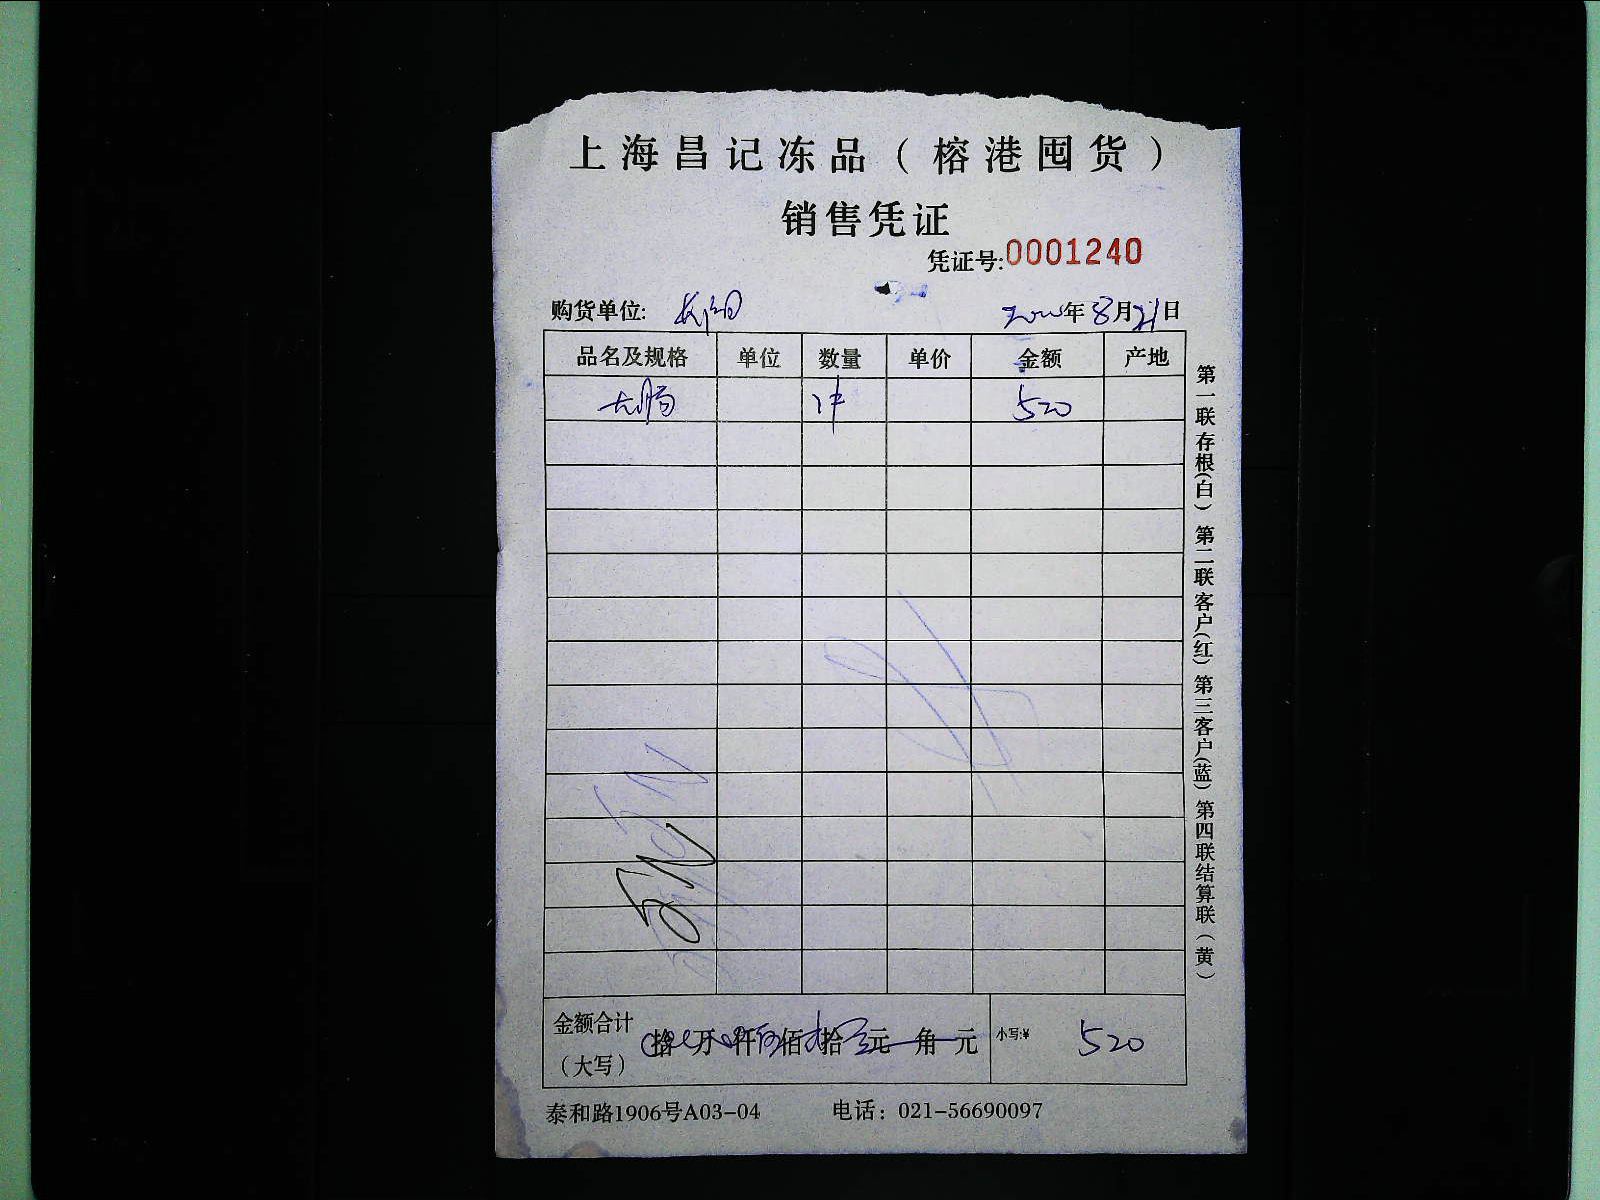 上海昌记冻品（榕港囤货）
销售凭证
凭证号:0001240
购货单位:
年8月21日
品名及规格 单位 数量 单价 金额 产地
大肠 1件 520
金额合计
（大写）
拾 万 仟 佰 拾 元 角 元
小写:¥ 520
泰和路1906号A03-04 电话：021-56690097
第一联存根(白) 第二联客户(红) 第三客户(蓝) 第四联结算联(黄)